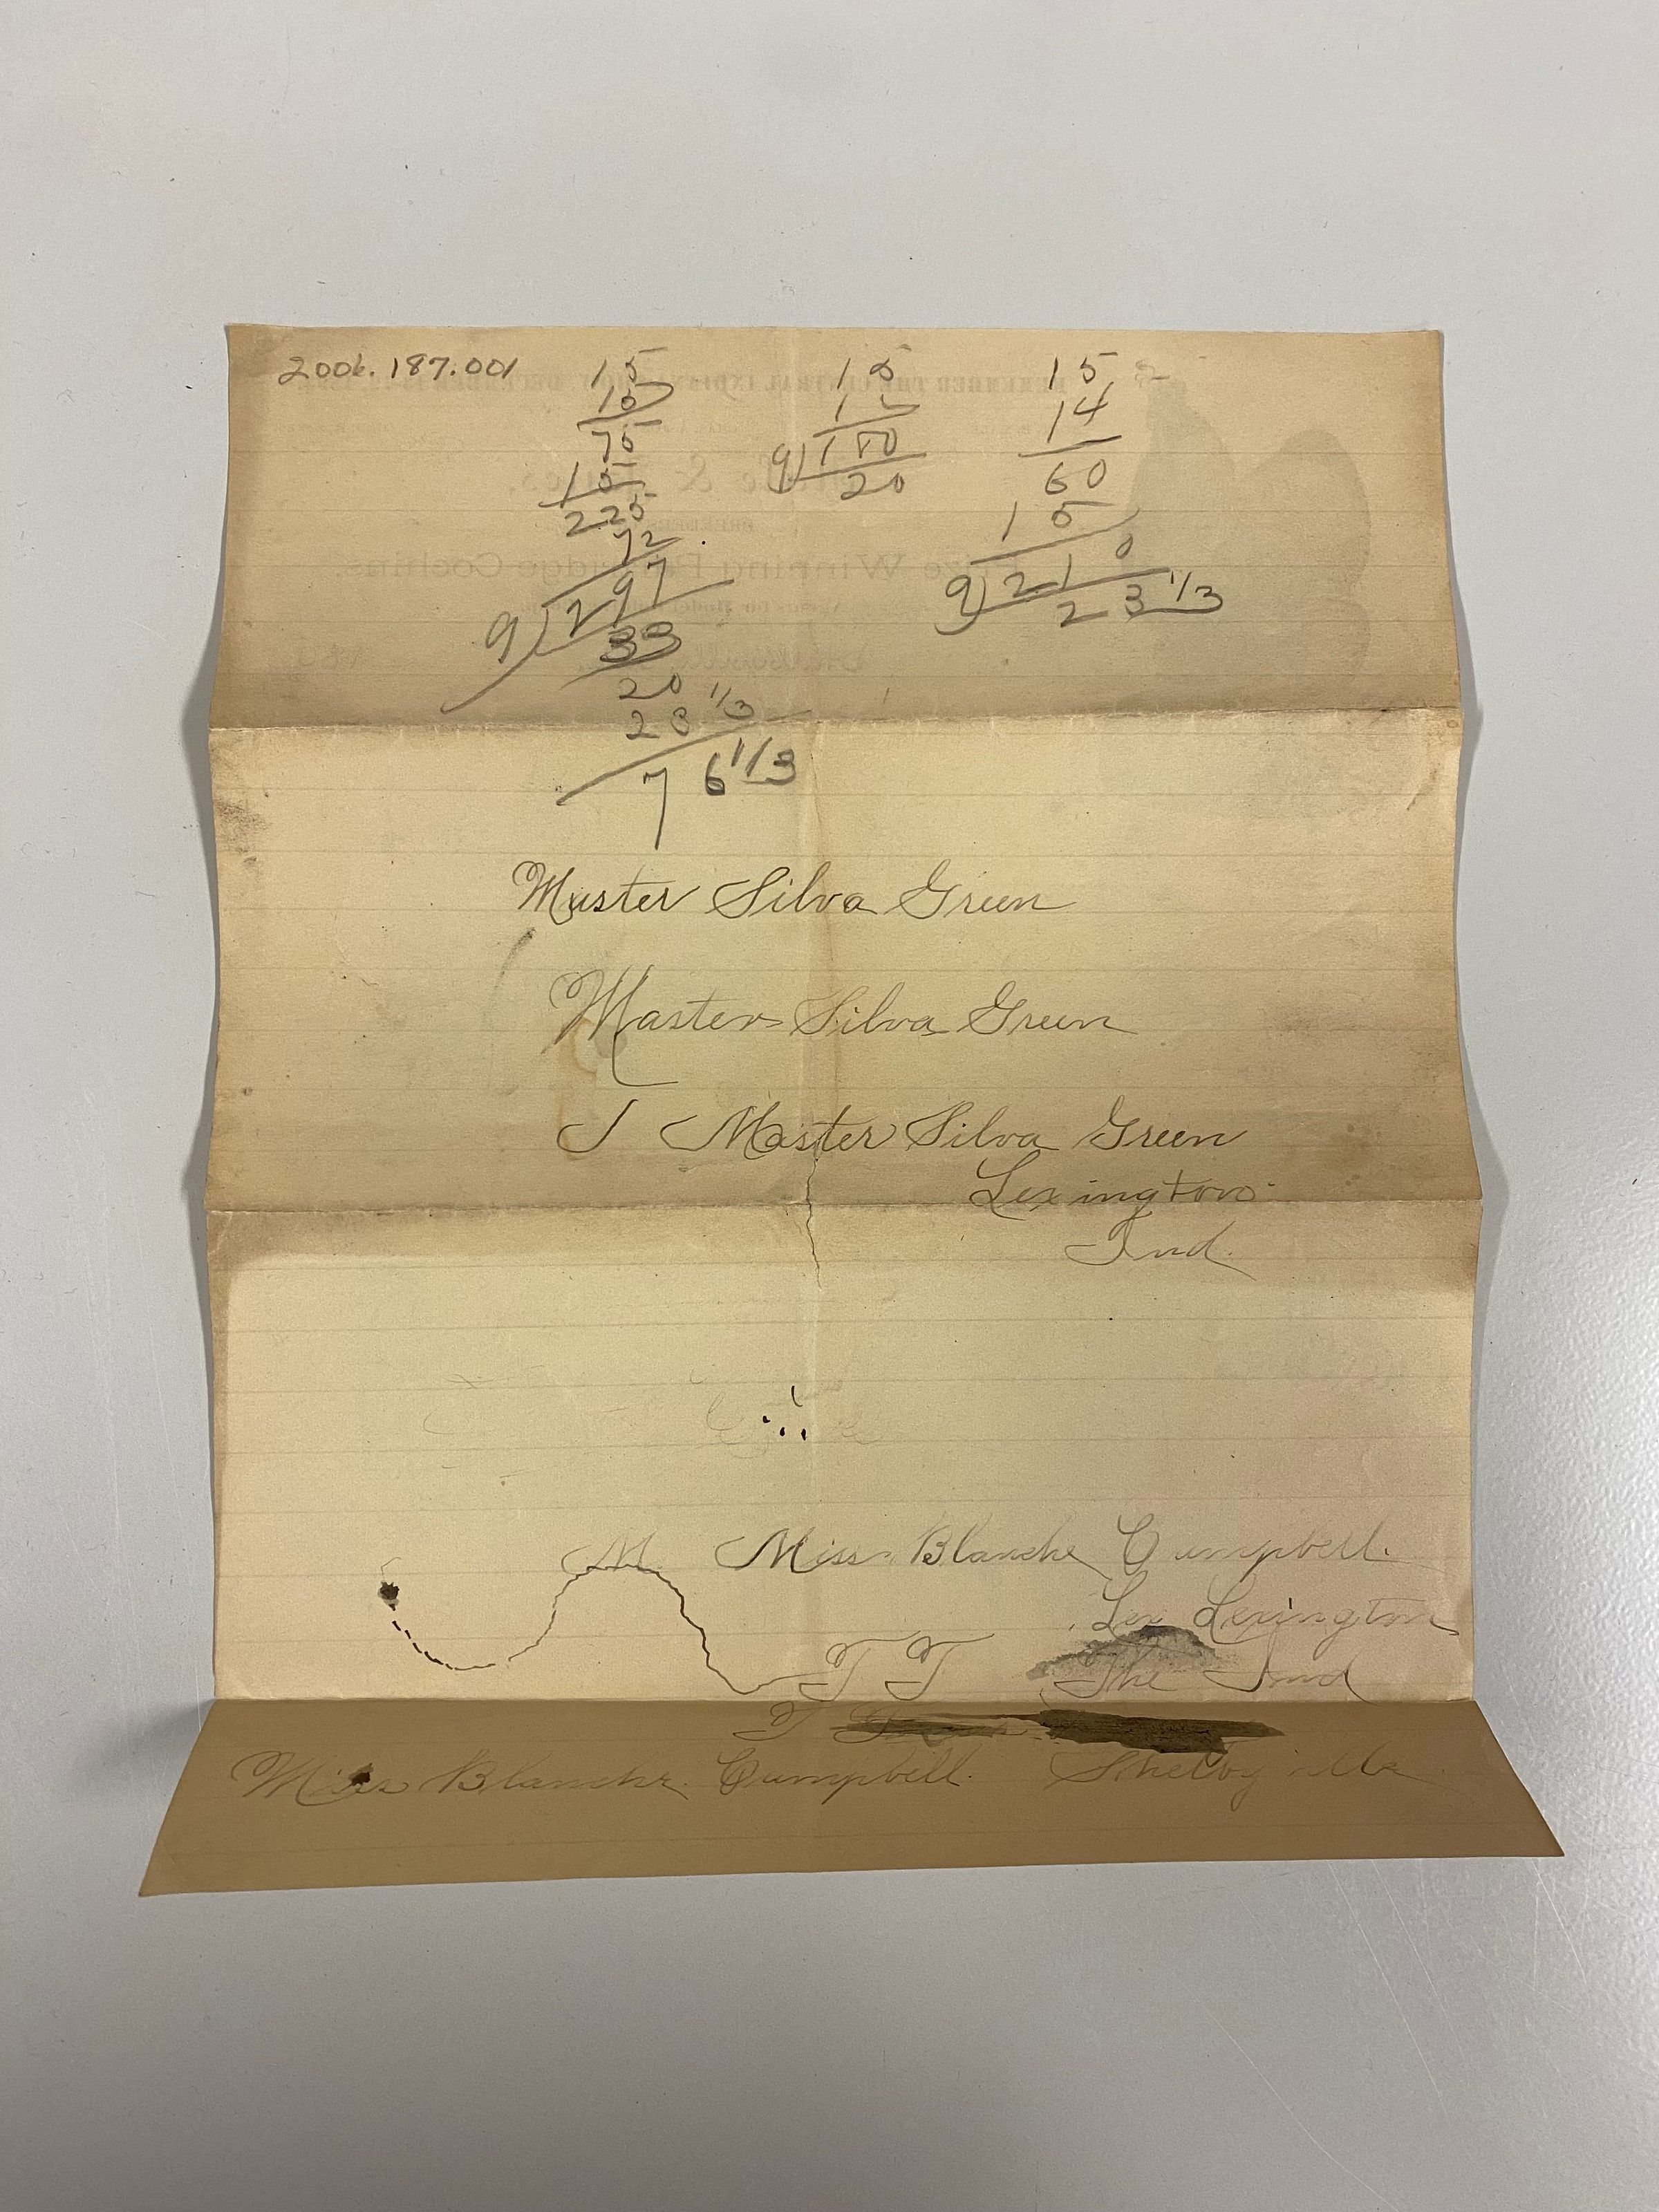 2006.187.001
15
15
75
15
225
72
9)297
33
20
23 1/3
76 1/3
15
12
9)180
20
15
14
60
15
9)210
23 1/3
Master Silva Green
Master Silva Green
J Master Silva Green
Lexington
Ind.
M Miss Blanche Campbell.
Lex Lexington
T T The Ind
T
Miss Blanche Campbell. Shelbyville